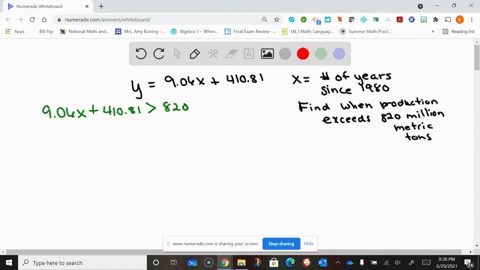 Numerade Whiteboard
numerade.com/answers/whiteboard/
Apps
Bill Pay
National Math and...
Mrs. Amy Koning -...
Algebra 1 – When...
Final Exam Review -...
IXL | Math, Languag...
Summer Math Pract...
Reading list
y = 9.06x + 410.81
x = # of years
since 1980
9.06x + 410.81 > 820
Find when production
exceeds 820 million
metric
tons
www.numerade.com is sharing your screen.
Stop sharing
Hide
Type here to search
8:38 PM
6/29/2021